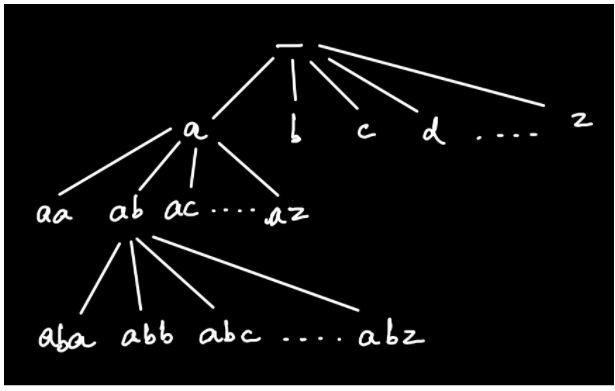 —
a b c d .... z
aa ab ac .... az
aba abb abc .... abz